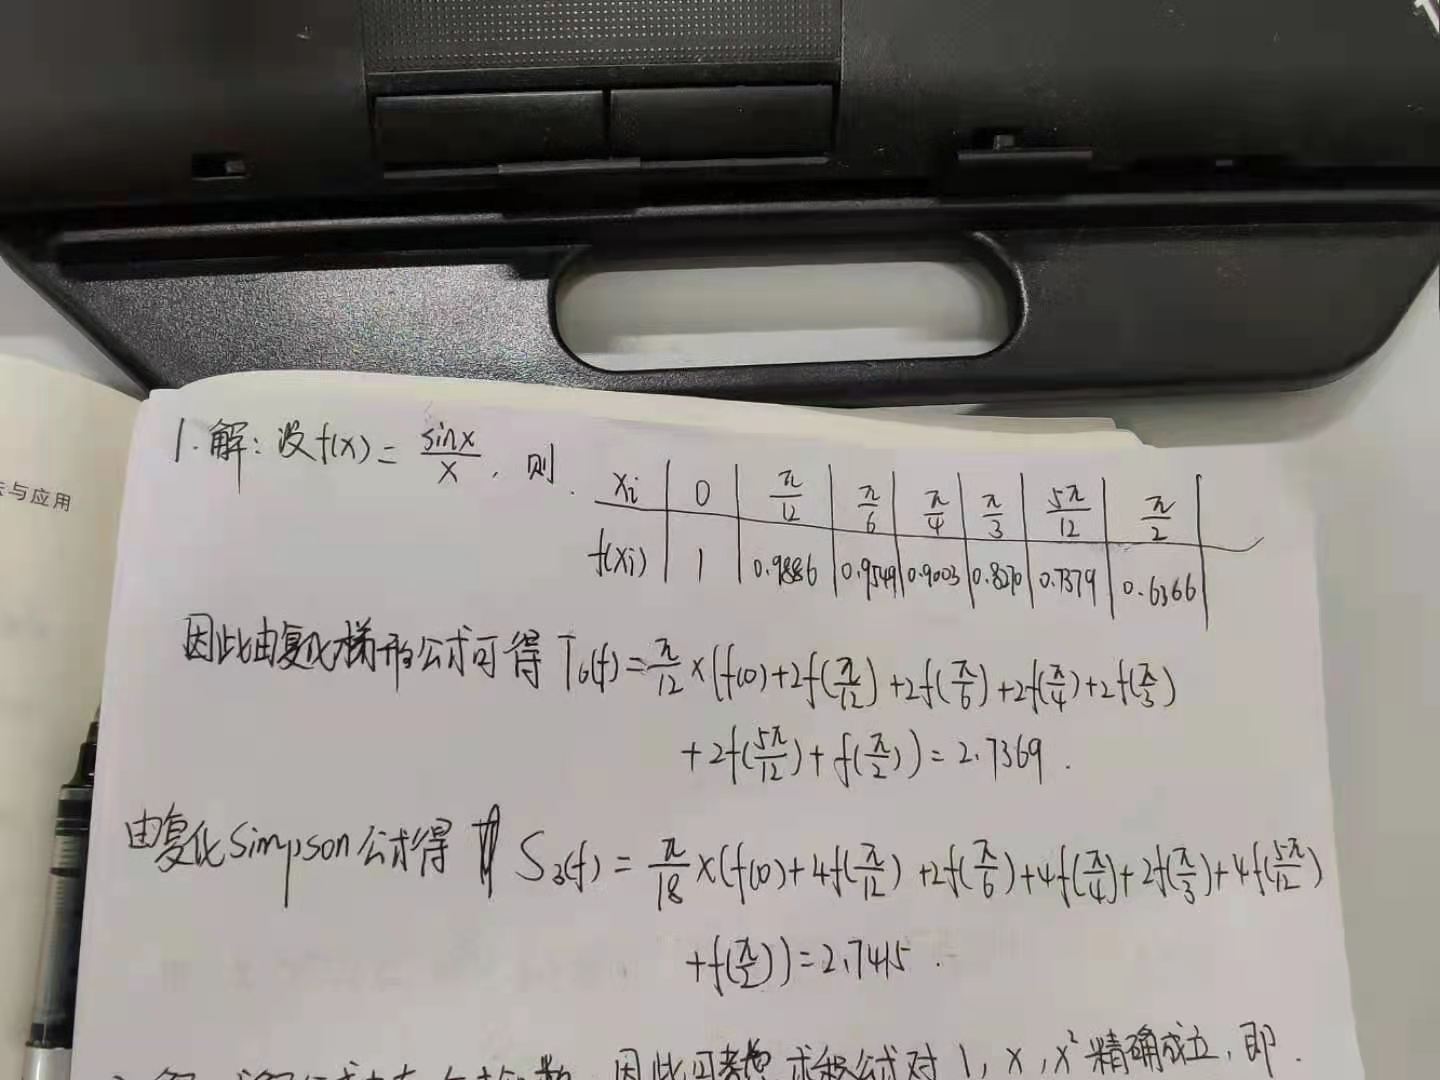 法与应用
1. 解: 设 f(x) = sinx/x , 则
xi | 0 | π/12 | π/6 | π/4 | π/3 | 5π/12 | π/2
f(xi) | 1 | 0.9886 | 0.9549 | 0.9003 | 0.8270 | 0.7379 | 0.6366
因此由复化梯形公式可得 T6(f) = π/12 × (f(0) + 2f(π/12) + 2f(π/6) + 2f(π/4) + 2f(π/3)
+ 2f(5π/12) + f(π/2)) = 2.7369 .
由复化Simpson公式得 S3(f) = π/18 × (f(0) + 4f(π/12) + 2f(π/6) + 4f(π/4) + 2f(π/3) + 4f(5π/12)
+ f(π/2)) = 2.7415 .
因此可考虑求积公式对 1, x, x² 精确成立, 即